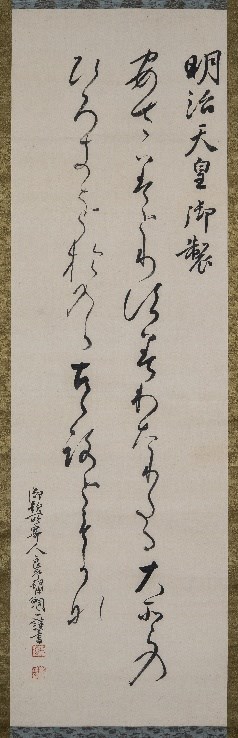 明治天皇御製
あさみとりすみわたりたる大空の
ひろきをおのかこゝ路ともかな
御歌所寄人